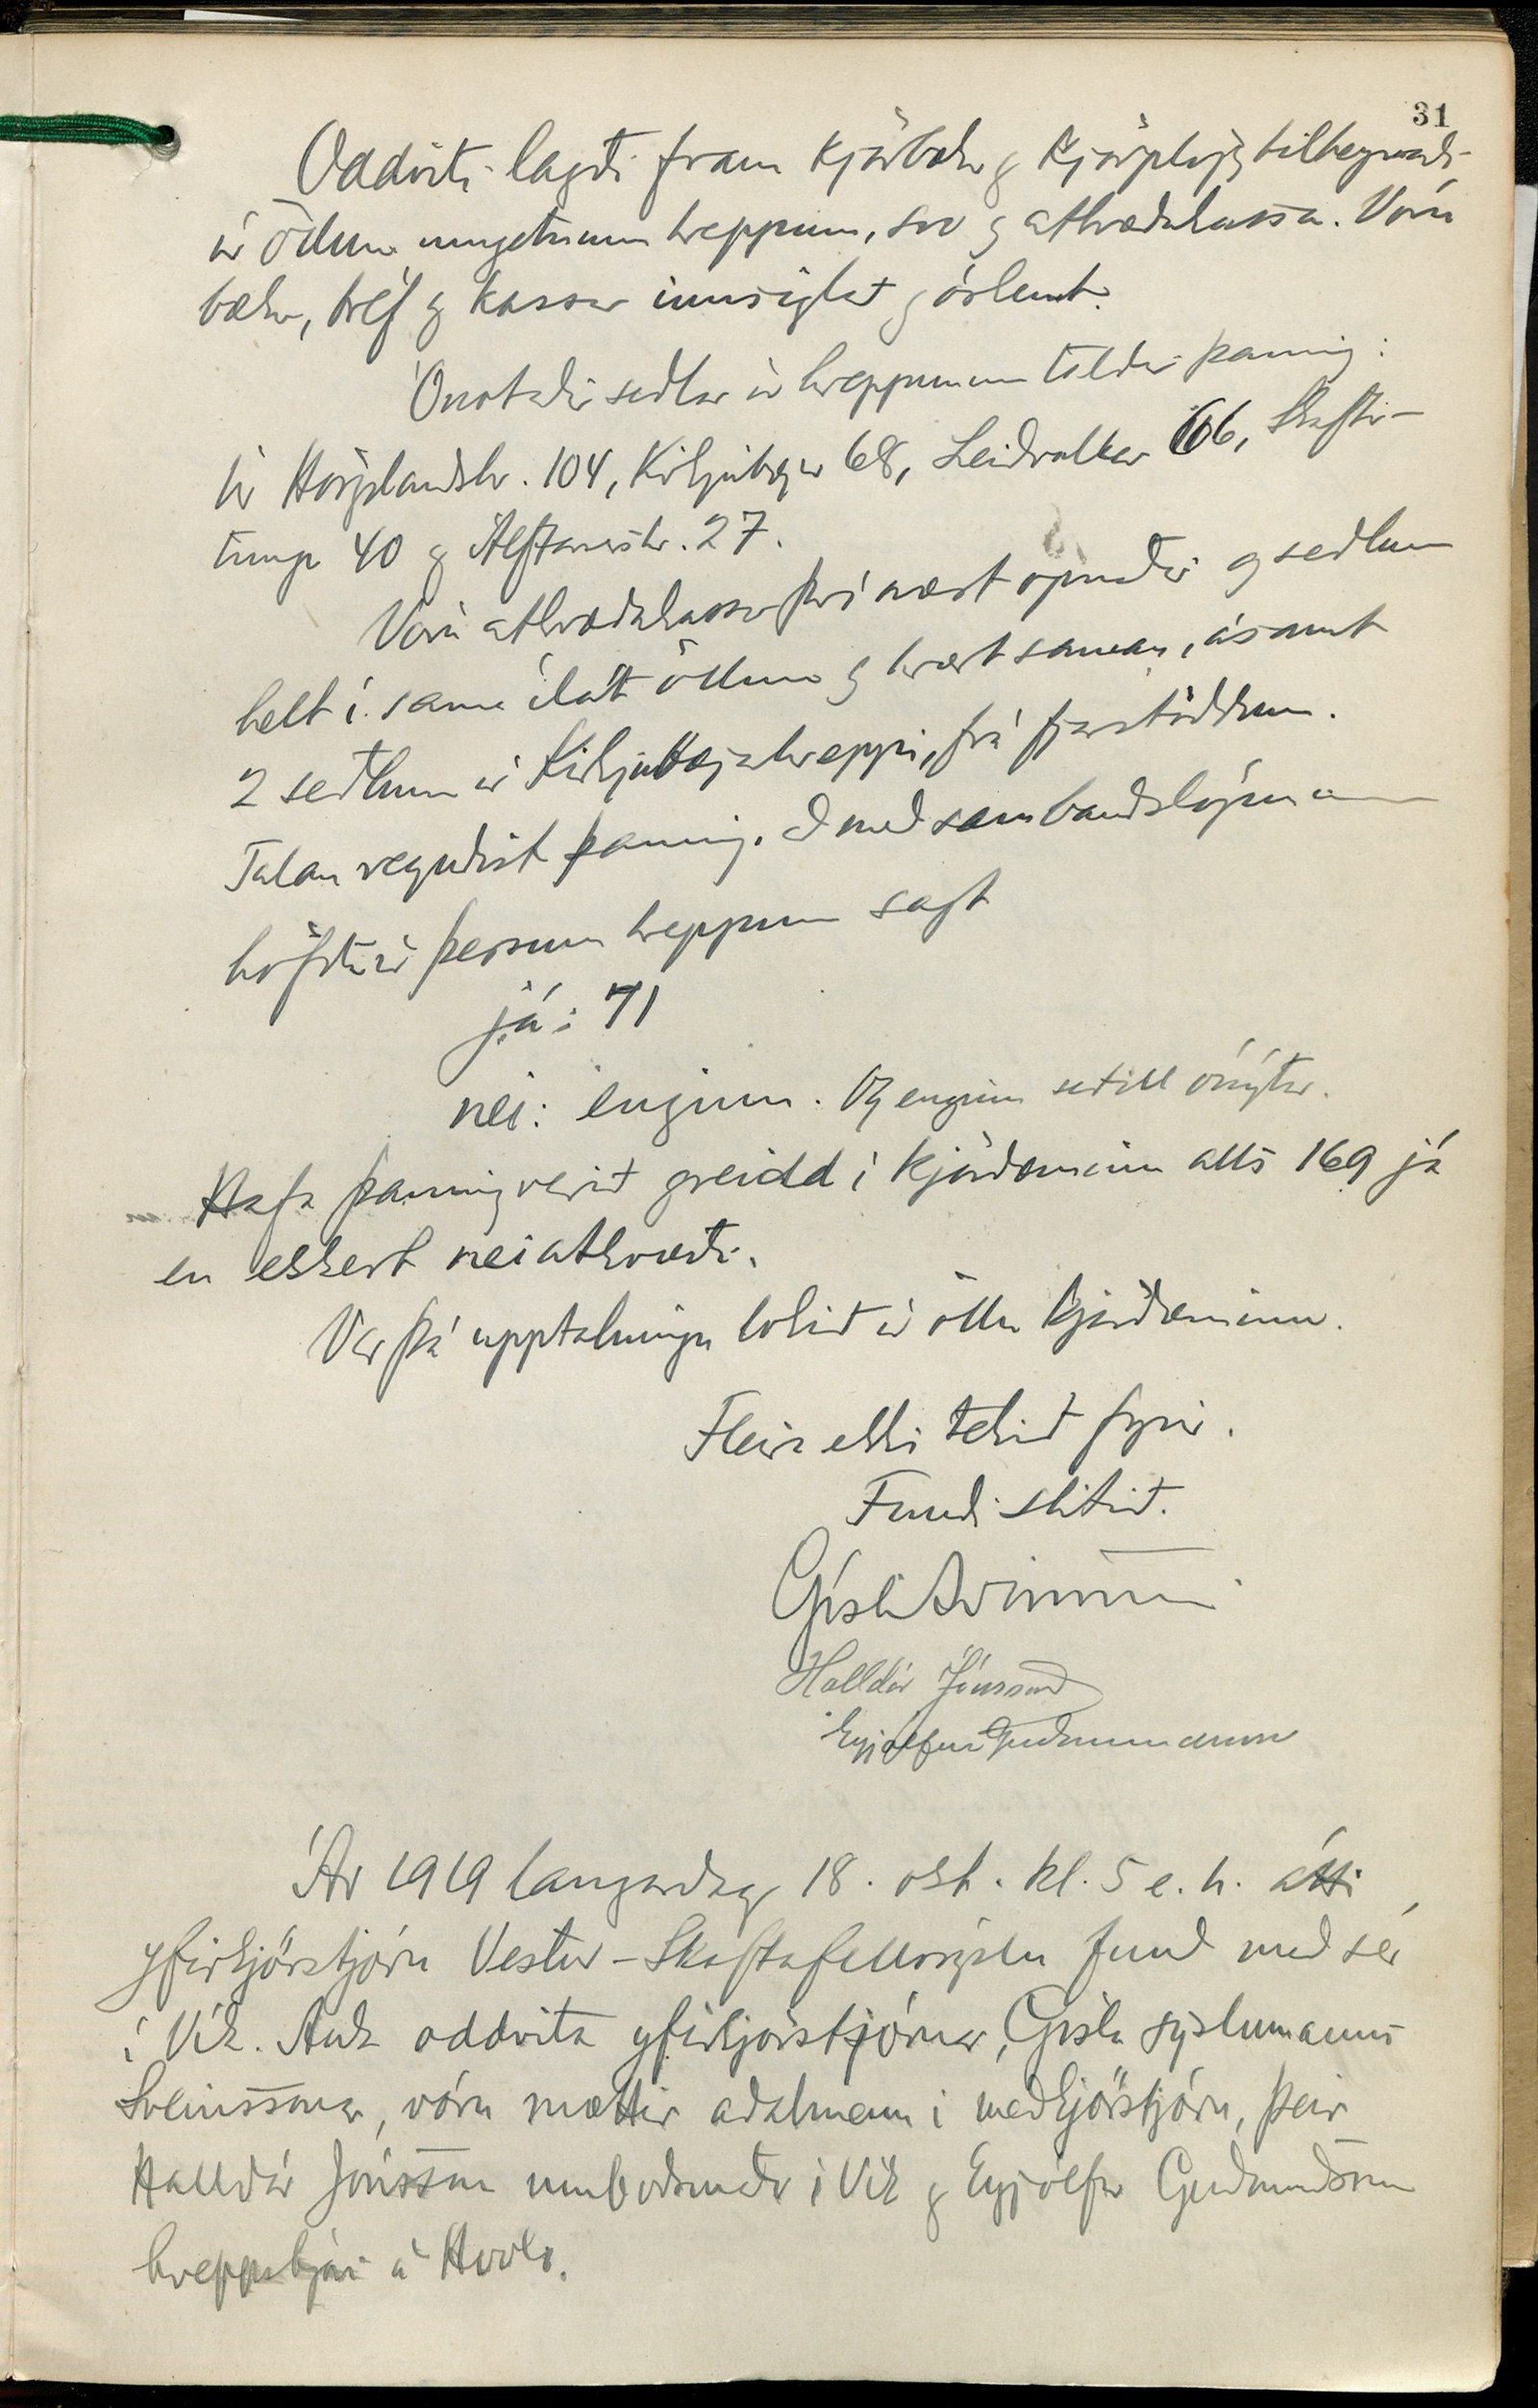 31
Oddviti lagði fram kjörbækr og kjörplögg tilheyrandi
úr öllum umgetnum hreppum, svo og atkvæðakassa. Vóru
bækr, bréf og kassar innsiglað og óskemt.
Ónotaðir seðlar úr hreppunum töldir þannig:
Úr Hörgslandshr. 104, Kirkjubæjar 68, Leiðvallar 66, Skaftár-
tungu 40 og Álftavershr. 27.
Vóru atkvæðakassar því næst opnaðir og seðlum
helt í sama ílát öllum og hrært saman, ásamt
2 seðlum úr Kirkjubæjarhreppi, frá fjarstöddum.
Talan reyndist þannig. Að með sambandslögunum
höfðu úr þessum hreppum sagt
já: 71
nei: enginn. Og enginn seðill ónýtur.
Hafa þannig verið greidd í kjördæminu alls 169 já
en ekkert nei atkvæði.
Var þá upptalningu lokið úr öllu kjördæminu.
Fleira ekki tekið fyrir.
Fundi slitið.
Gísli Sveinsson
Halldór Jónsson
Eyjólfur Guðmundsson
Ár 1919 laugardag 18. okt. kl. 5 e. h. átti
yfirkjörstjórn Vestur-Skaftafellssýslu fund með sér
í Vík. Auk oddvita yfirkjörstjórnar, Gísla sýslumanns
Sveinssonar, vóru mættir aðalmenn í meðkjörstjórn, þeir
Halldór Jónsson umboðsmaðr í Vík og Eyjólfur Guðmundsson
hreppstjóri á Hvoli.